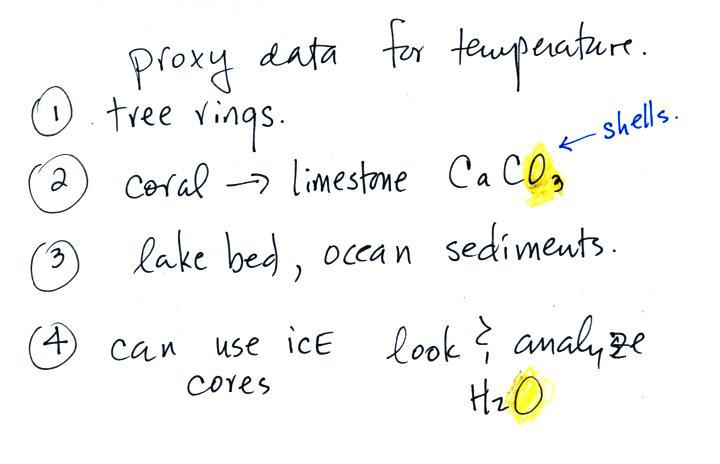 proxy data for temperature.
① tree rings.
← shells.
② coral → limestone CaCO₃
③ lake bed, ocean sediments.
④ can use icE look & analyze
cores H₂O